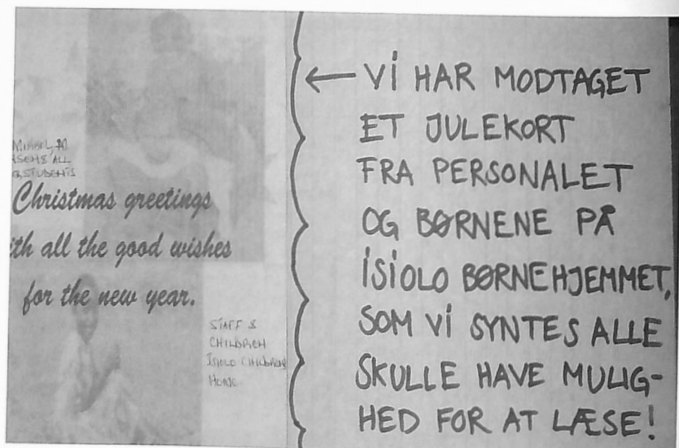 & STUDENTS
Christmas greetings
th all the good wishes
for the new year.
STAFF &
CHILDREN
ISIOLO CHILDRENS
HOME
← VI HAR MODTAGET
ET JULEKORT
FRA PERSONALET
OG BØRNENE PÅ
ISIOLO BØRNEHJEMMET,
SOM VI SYNTES ALLE
SKULLE HAVE MULIG-
HED FOR AT LÆSE!